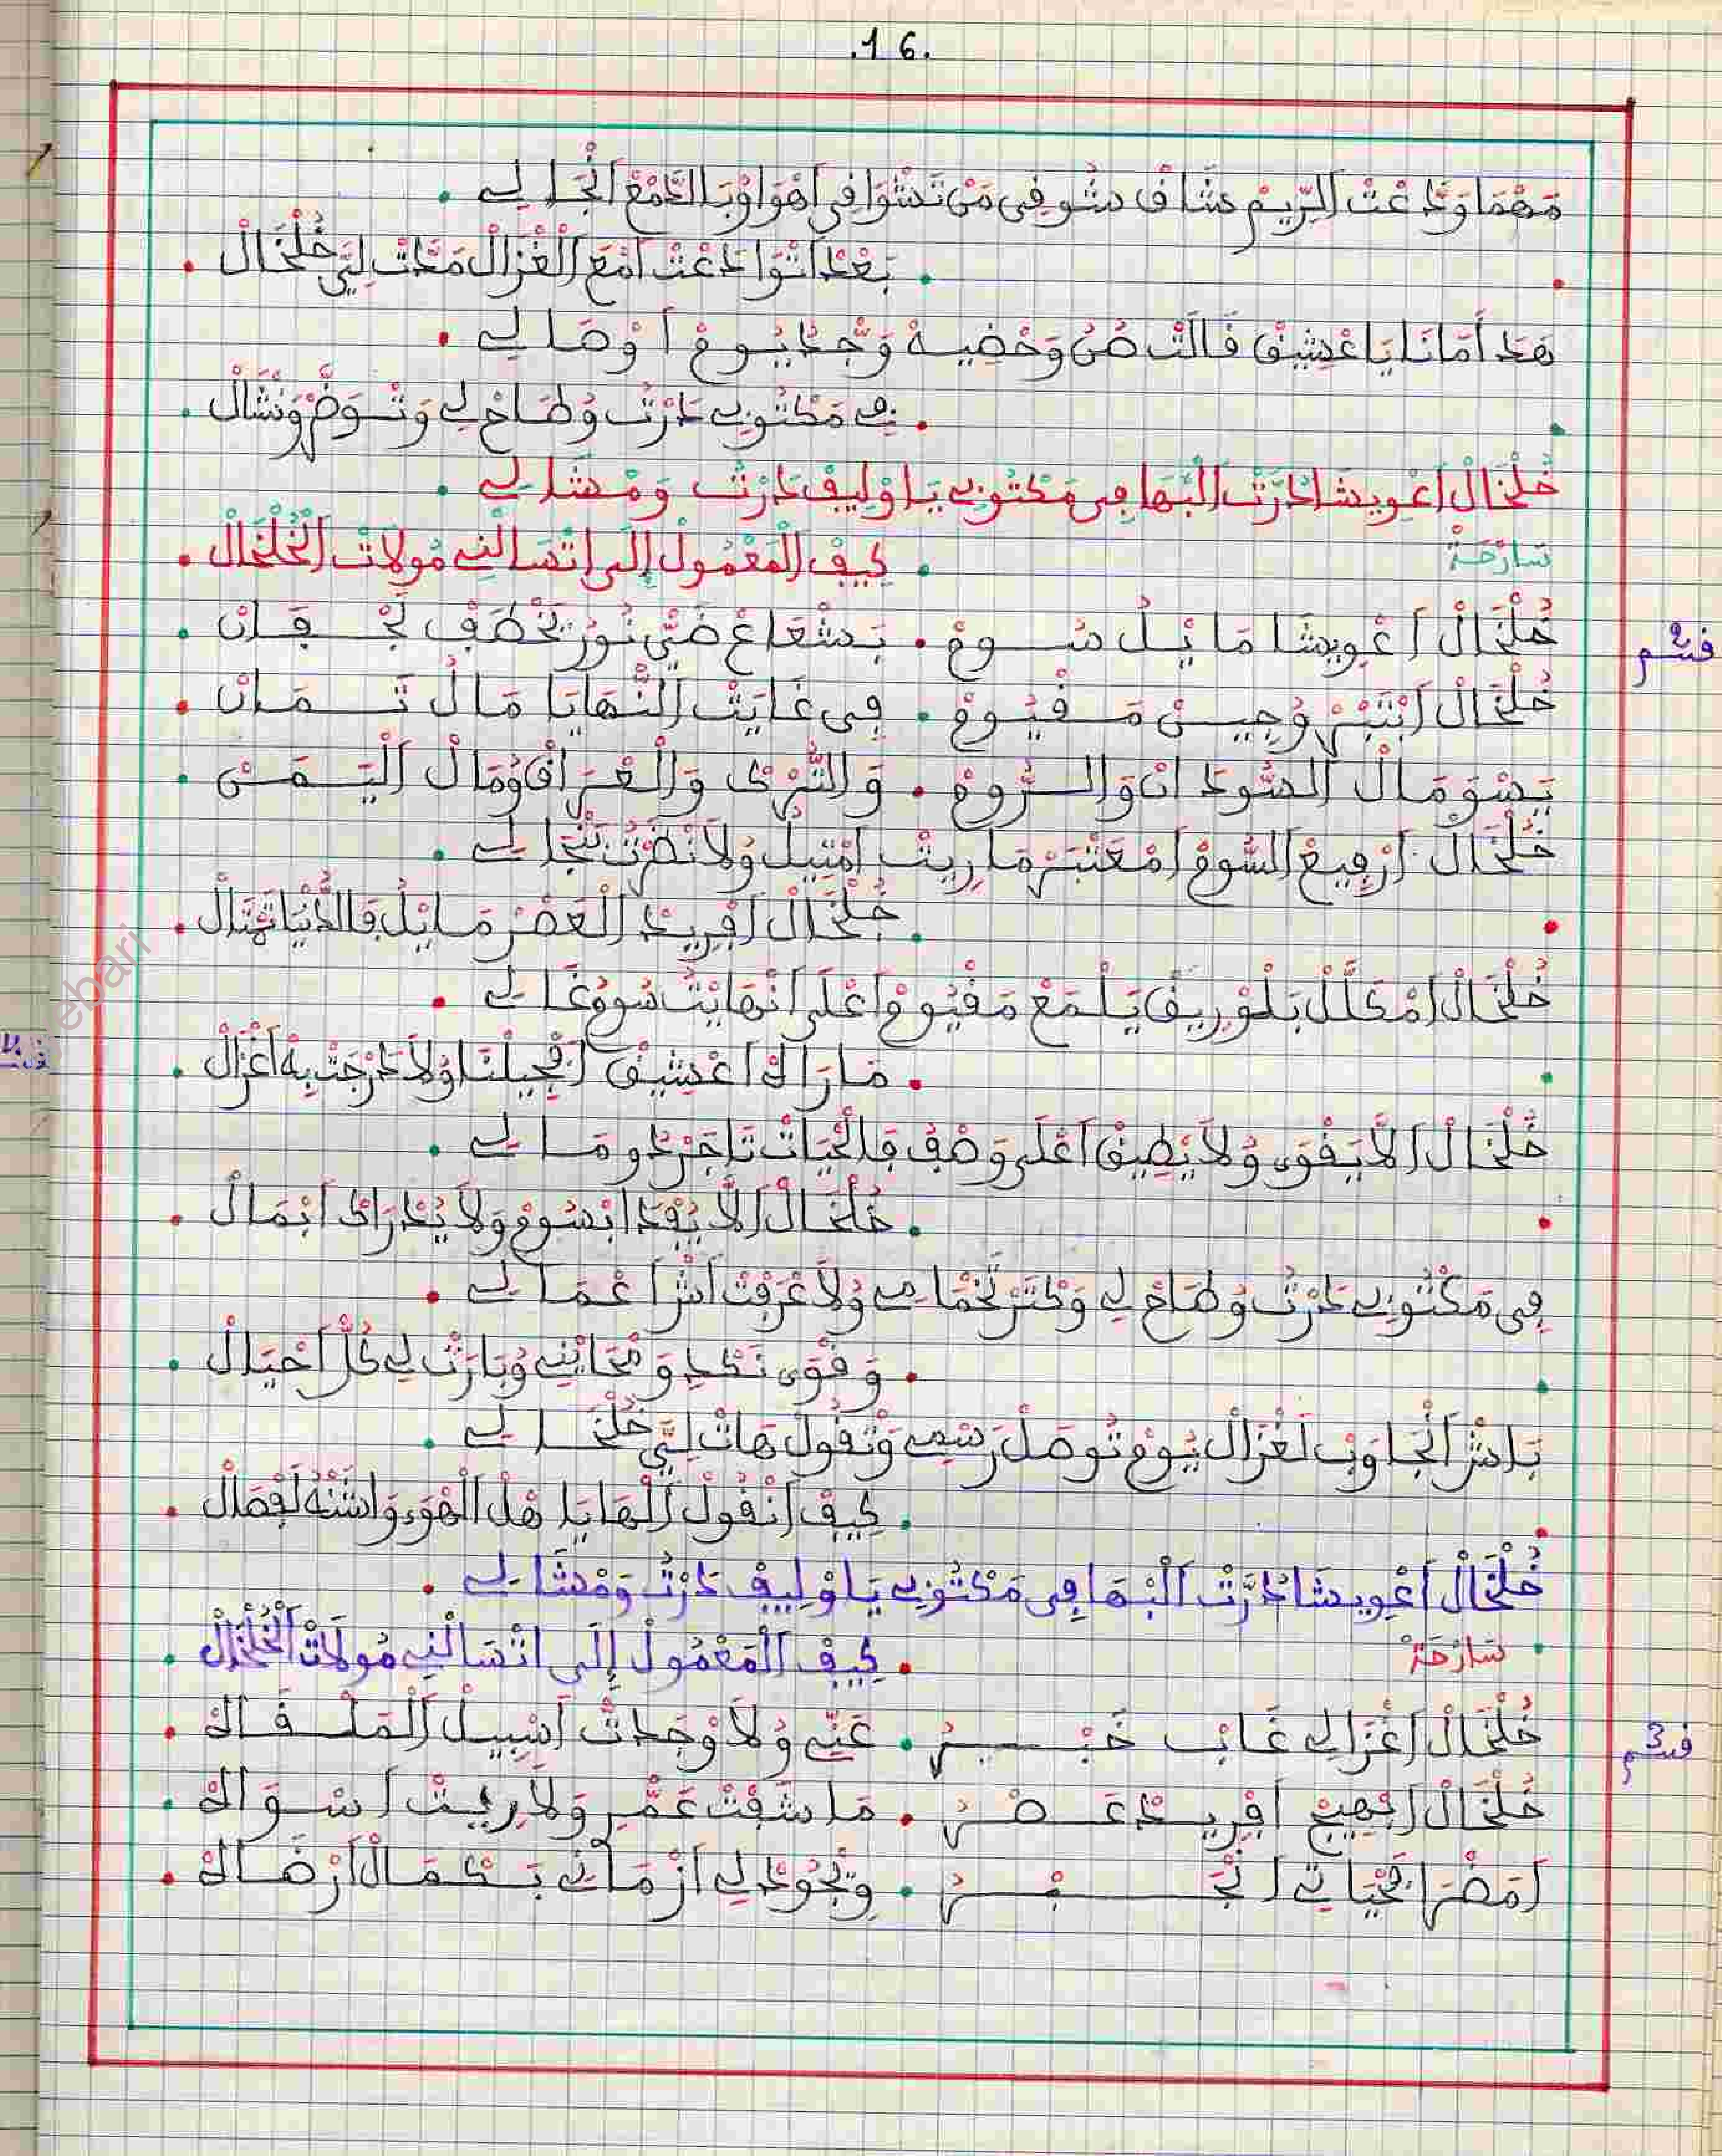 .16.
مَهْمَا وَدَّعْتْ الرِّيمْ عشَافْ شُوفِي مَنْ تَشْوَافِي أهْوَاوْبَا الدَّمْعْ انْجَالِي .
. بَعْدْ اتْوَادَعْتْ امْعَ الْغْزَالْ مَدَّتْ لِيَّ خُلْخَالْ .
هَدَ أمَانَا يَا عْشِيقْ قَالَتْ صُنْ وَحْضِيهْ وَجْدْ يُومْ اوْصَالِي .
. فِي مَكْتُوبِي دَرْتُ وُطَاحْ لِي وَتْوَضَّرْ وَنْشَالْ .
خُلْخَالْ اعْوِيشَا دُرَّتْ الَبْهَا فِي مَكْتُوبِي يَا وْلِيفْ دَرْتُ وَمْشَا لِي .
سَارْحَةْ
. كِيفْ الْمَعْمُولْ إلَى اتْسَالْنِي مُولَاتْ الْخُلْخَالْ .
قسم 2
خُلْخَالْ اعْوِيشَا مَا يْلُ سُومْ . بَشْعَاعْ ضَيّ نُورْ يَخْطَفْ لَجْفَانْ .
خُلْخَالْ ابْتَبْرْ وُجِينْ مَفْيُومْ . فِي غَايَتْ النْهَايَا مَالُ تَمَانْ .
يَسْوَ مَالْ السُّودَانْ وَالرُّومْ . وَالتُّرْكْ وَالْعْرَاقْ وُمَالْ الْيَمَنْ .
خُلْخَالْ ارْفِيعْ السُّومْ امْعَتْبَرْ مَا رِيتْ امْتِيلُ وُلَا نَضْرَتْ نَنْجَالِي .
. خُلْخَالْ افْرِيدْ الْعَصْرْ مَا يْلُ فَالدُّنْيَا تَمْتَالْ .
خُلْخَالْ امْكَلَّلْ بَلُورِيقْ يَلْمَعْ مَفْيُومْ اعْلَى انْهَايْتْ سُومُ غَالِي .
. مَا رَاكْ اعْشِيقْ افْجِيلْنَا وُلَا خَرْجَتْ بِهْ اغْزَالْ .
خُلْخَالْ الَّا يَقْوَى وُلَا يَطِيقْ اعْلَى وَصْفُ فَالْحْيَاتْ تَاجَرْ دُو مَالِي .
. خُلْخَالْ الَّا يُفْدَا ابْسُومْ وَلَا يُدْرَاكْ ابْمَالْ .
فِي مَكْتُوبِي دَرْتُ وُطَاحْ لِي وَكْتَرْ تَخْمَامِي وُلَا عْرَفْتْ اشْرَا عْمَالِي .
. وَقْوَى نَكْدِي وَمْحَايْنِي وُبَارَتْ لِي كُلّ احْيَالْ .
بَاشْ انْجَاوَبْ لَغْزَالْ يُومْ تُوصَلْ رَسْمِي وَتْقُولْ هَاتْ لِيَّ خُلْخَالِي .
. كِيفْ انْقُولْ الْهَا يَا هْلْ الْهْوَى وَاشْنْهُ لَفْصَالْ .
خُلْخَالْ اعْوِيشَا دُرَّتْ الَبْهَا فِي مَكْتُوبِي يَا وْلِيفْ دَرْتُ وَمْشَا لِي .
سَارْحَةْ
. كِيفْ الْمَعْمُولْ إلَى اتْسَالْنِي مُولَاتْ الْخُلْخَالْ .
قسم 3
خُلْخَالْ اغْزَالِي غَابْ خَبْرُ . عَنِّي وُلَا وْجَدْتْ اسْبِيلْ الْمَلْقَاكْ .
خُلْخَالْ ابْهِيجْ افْرِيدْ عَصْرُ . مَا شَفْتْ عَمْرِي وَلَا رِيتْ اسْوَاكْ .
امْضَرَا فَحْيَاتِي انْجَبْرُ . وِتْجُودْ لِي ازْمَانِي بَكْمَالْ ارْضَاكْ .
ebari